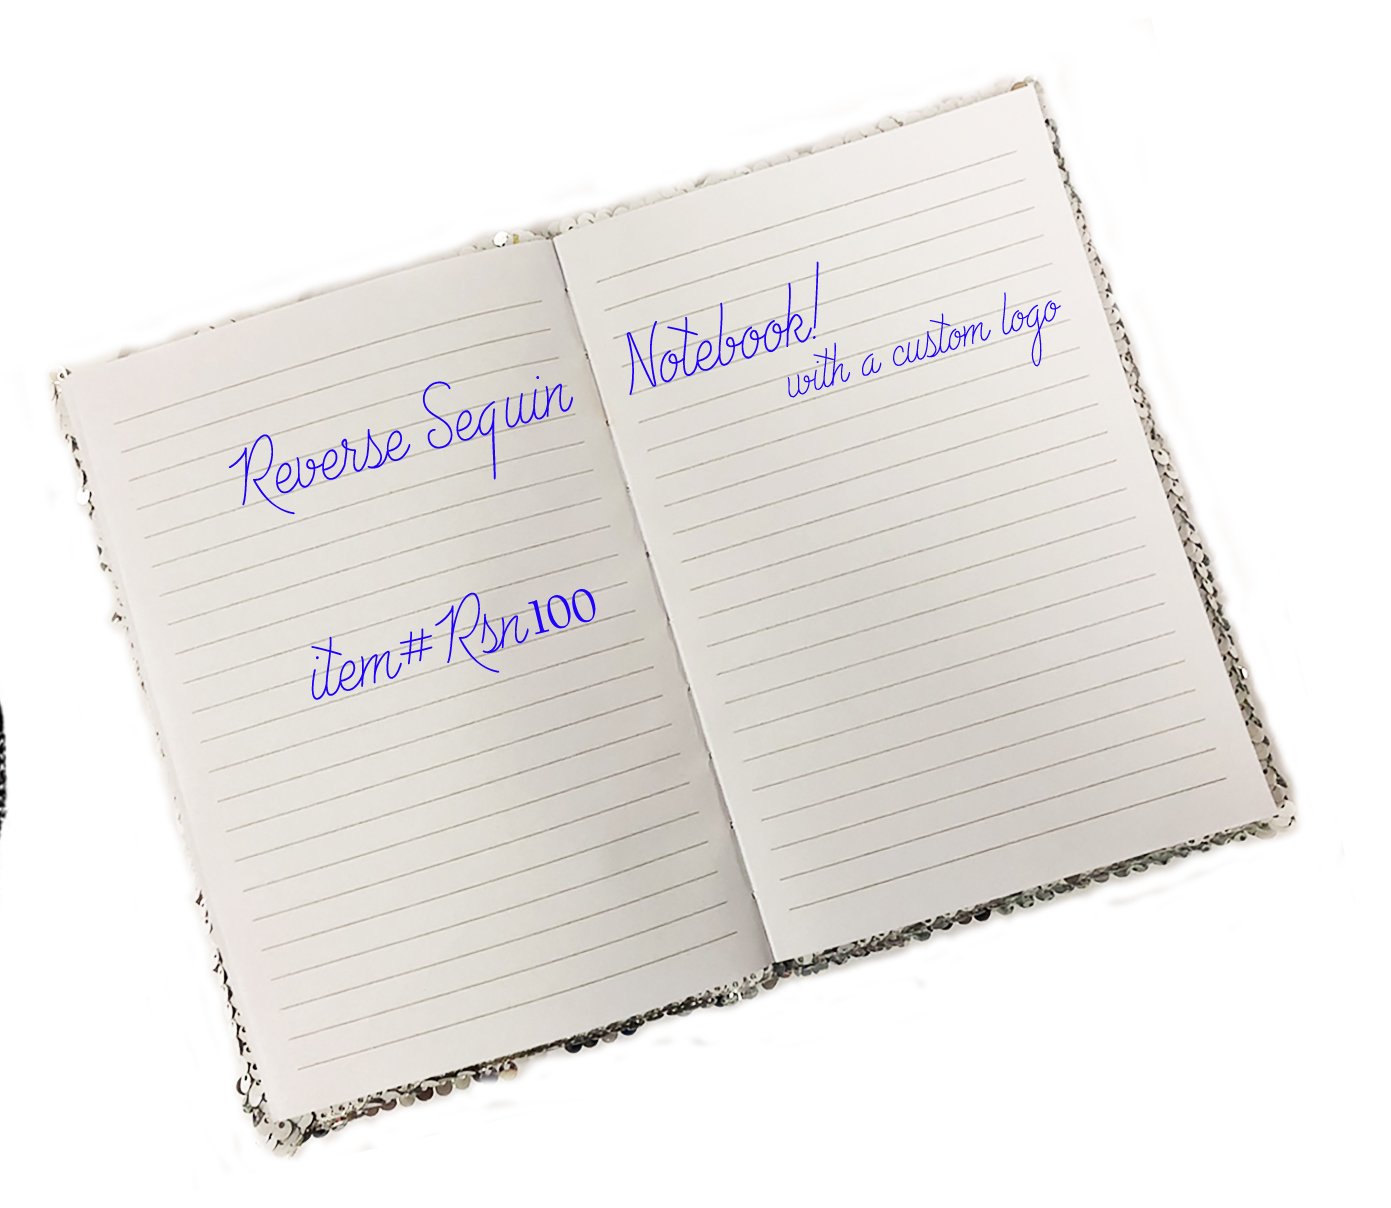 Reverse Sequin Notebook!
with a custom logo
item#Rsn100